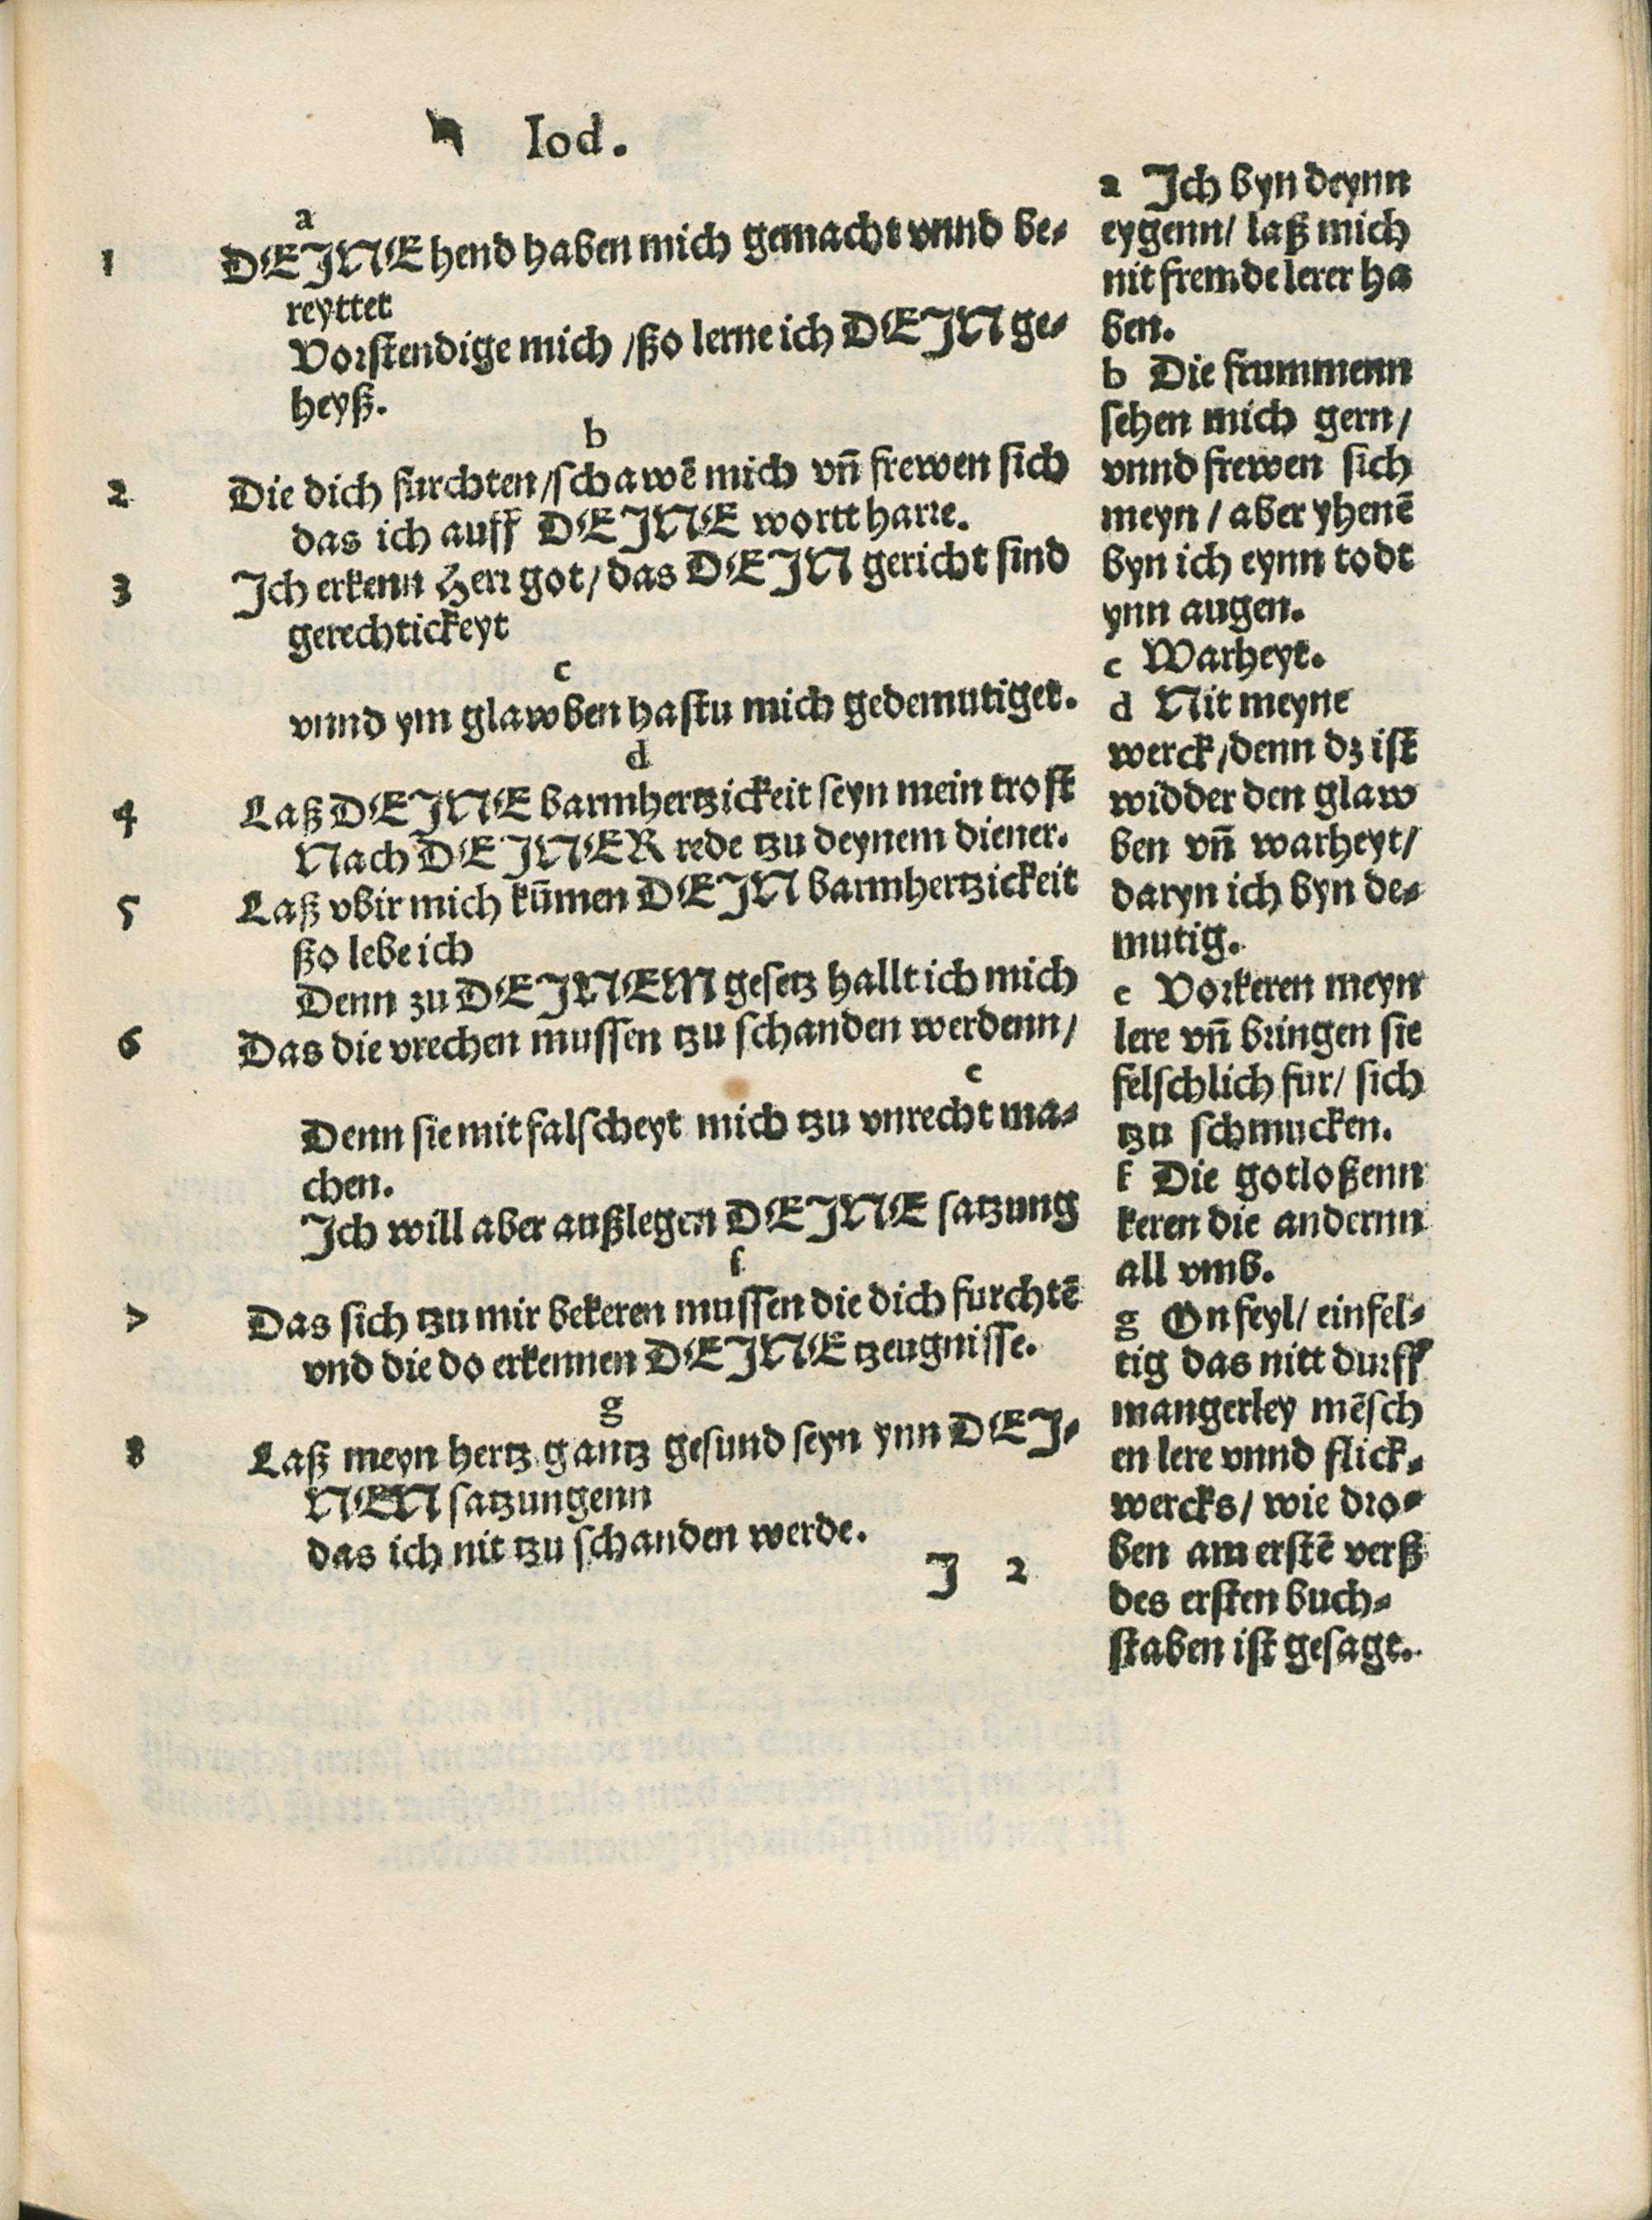 Iod.
a
1 DEJNE hend haben mich gemacht vnnd be⸗
reyttet
Vorſtendige mich /ßo lerne ich DEJN ge⸗
heyß.
b
2 Die dich furchten/ſchawē mich vn̄ frewen ſich
das ich auff DEJNE wortt harre.
3 Jch erkenn Herr got/ das DEJN gericht ſind
gerechtickeyt
c
vnnd ym glawben haſtu mich gedemutiget.
d
4 Laß DEJNE barmhertzickeit ſeyn mein troſt
Nach DEJNER rede tzu deynem diener.
5 Laß vbir mich kūmen DEJN barmhertzickeit
ßo lebe ich
Denn zu DEJNEM geſetz hallt ich mich
6 Das die vrechen muſſen tzu ſchanden werdenn/
e
Denn ſie mit falſcheyt mich tzu vnrecht ma⸗
chen.
Jch will aber außlegen DEJNE ſatzung
f
7 Das ſich tzu mir bekeren muſſen die dich furchtē
vnd die do erkennen DEJNE tzeugniſſe.
g
8 Laß meyn hertz gantz geſund ſeyn ynn DEJ⸗
NEN ſatzungenn
das ich nit tzu ſchanden werde.
J 2
a Jch byn deynn
eygenn/ laß mich
nit fremde lerer ha
ben.
b Die frummenn
ſehen mich gern/
vnnd frewen ſich
meyn / aber yhenē
byn ich eynn todt
ynn augen.
c Warheyt.
d Nit meyne
werck/denn dz iſt
widder den glaw
ben vn̄ warheyt/
daryn ich byn de⸗
mutig.
e Vorkeren meyn
lere vn̄ bringen ſie
felſchlich fur/ ſich
tzu ſchmucken.
f Die gotloßenn
keren die andernn
all vmb.
g On feyl/ einfel⸗
tig das nitt durff
mangerley mēſch
en lere vnnd flick⸗
wercks/ wie dro⸗
ben am erſtē verß
des erſten buch⸗
ſtaben iſt geſagt.